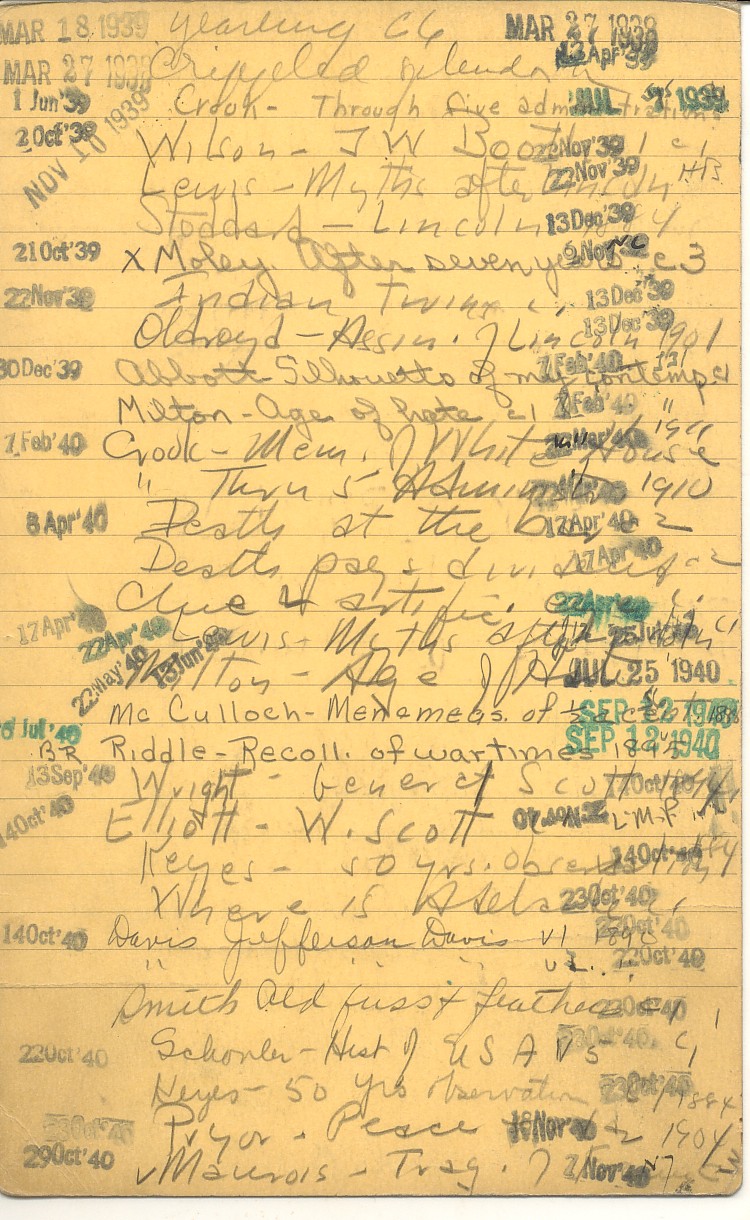 MAR 18 1939 Yearling C6 MAR 27 1939
MAR 27 1938 Crippled splendor 12 Apr '39
1 Jun '39 Crook - Through five administrations JUL 1939
2 Oct '39 Wilson - J W Booth 22 Nov '39 c1
NOV 10 1939 Lewis - Myths after Lincoln 22 Nov '39 HB
Stoddard - Lincoln 13 Dec '39
21 Oct '39 X Moley After seven years 6 Nov c3
22 Nov '39 Indian Twins 13 Dec '39
Oldroyd - Assin. of Lincoln 1901 13 Dec '39
30 Dec '39 Abbott - Silhouetts of my contemp c1 7 Feb '40
Milton - Age of hate c1 7 Feb '40 "
7 Feb '40 Crook - Mem. of White House 1911 Mar '40
" Thru 5 Administr 1910
8 Apr '40 Death at the 17 Apr '40 2
Death pays dividends 17 Apr '40 c2
Clue artific. 22 Apr '40
17 Apr '40 22 Apr '40 Lewis - Myths after Lincoln 25 c1
22 May '40 13 Jun '40 Milton - Age of Hate JUL 25 1940
Jul '40 Mc Culloch - Men & meas. of ½ a cent. 1888 SEP 12 1940
BR Riddle - Recoll. of wartimes 1895 SEP 12 1940
13 Sep '40 Wright - General Scott 1894 Oct '40
14 Oct '40 Elliott - W. Scott L.M.P.
Keyes - 50 yrs. Observation 14 Oct '40
Where is Adelaide 23 Oct '40
14 Oct '40 Davis Jefferson Davis v1 1890 22 Oct '40
" " " v2 " 22 Oct '40
Smith Old fuss & feathers 23 Oct '40
22 Oct '40 Schouler - Hist of U S A V5 c1
Keyes - 50 yrs observation 1884 23 Oct '40
Pryor - Peace 18 Nov '40 1904
29 Oct '40 Maurois - Trag. of 7 Nov '40